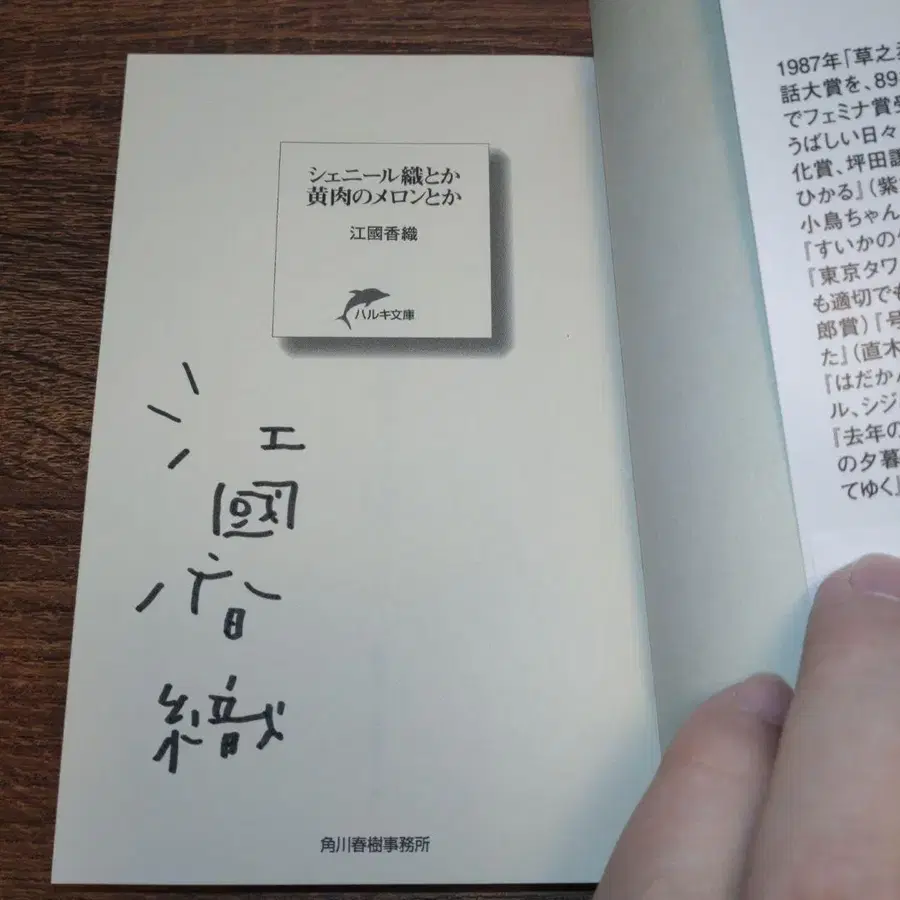 シェニール織とか
黄肉のメロンとか
江國香織
ハルキ文庫
江
國
香
織
角川春樹事務所
1987年「草之
話大賞を、89
でフェミナ賞
うばしい日々
化賞、坪田譲
ひかる』(紫
小鳥ちゃん
『すいかの
『東京タワ
も適切でも
郎賞)『号
た』(直木
『はだか
ル、シジ
『去年の
の夕暮
てゆく』